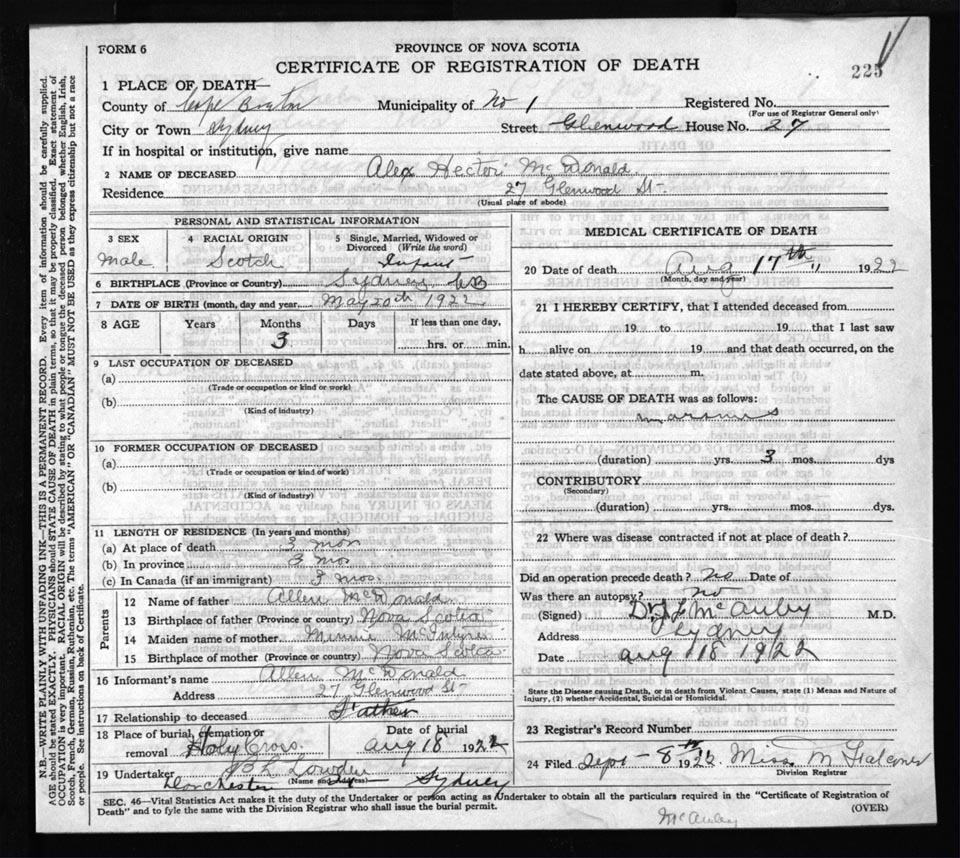 FORM 6
PROVINCE OF NOVA SCOTIA
CERTIFICATE OF REGISTRATION OF DEATH
225
1 PLACE OF DEATH—
County of Cape Breton Municipality of No 1 Registered No.
(For use of Registrar General only)
City or Town Sydney Street Glenwood House No. 27
If in hospital or institution, give name
2 NAME OF DECEASED Alex Hector McDonald
Residence 27 Glenwood St-
(Usual place of abode)
PERSONAL AND STATISTICAL INFORMATION
3 SEX 4 RACIAL ORIGIN 5 Single, Married, Widowed or Divorced (Write the word)
Male Scotch Infant
6 BIRTHPLACE (Province or Country) Sydney, CB
7 DATE OF BIRTH (month, day and year) May 20th 1922
8 AGE Years Months Days If less than one day,
3 hrs. or min.
9 LAST OCCUPATION OF DECEASED
(a)
(Trade or occupation or kind of work)
(b)
(Kind of industry)
10 FORMER OCCUPATION OF DECEASED
(a)
(Trade or occupation or kind of work)
(b)
(Kind of industry)
11 LENGTH OF RESIDENCE (In years and months)
(a) At place of death 3 mos
(b) In province 3 mos
(c) In Canada (if an immigrant) 3 mos.
Parents
12 Name of father Allen McDonald
13 Birthplace of father (Province or country) Nova Scotia
14 Maiden name of mother Minnie McIntyre
15 Birthplace of mother (Province or country) Nova Scotia
16 Informant's name Allen McDonald
Address 27 Glenwood St-
17 Relationship to deceased Father
18 Place of burial, cremation or removal Holy Cross Date of burial Aug 18 1922
19 Undertaker Lowden
(Name and
Dorchester Sydney
MEDICAL CERTIFICATE OF DEATH
20 Date of death Aug 17th 1922
(Month, day and year)
21 I HEREBY CERTIFY, that I attended deceased from
19 to 19 that I last saw
h alive on 19 and that death occurred, on the
date stated above, at m.
The CAUSE OF DEATH was as follows:
marasmus
(duration) yrs. 3 mos. dys
CONTRIBUTORY
(Secondary)
(duration) yrs. mos. dys.
22 Where was disease contracted if not at place of death?
Did an operation precede death? No Date of
Was there an autopsy? no
(Signed) Dr McAuley M.D.
Address Sydney
Date Aug 18 1922
State the Disease causing Death, or in death from Violent Causes, state (1) Means and Nature of
Injury, (2) whether Accidental, Suicidal or Homicidal.
23 Registrar's Record Number
24 Filed Sept - 8th 1922 Miss M Falconer
Division Registrar
SEC. 46—Vital Statistics Act makes it the duty of the Undertaker or person acting as Undertaker to obtain all the particulars required in the "Certificate of Registration of
Death" and to fyle the same with the Division Registrar who shall issue the burial permit.
(OVER)
McAuley
N.B.—WRITE PLAINLY WITH UNFADING INK—THIS IS A PERMANENT RECORD. Every item of information should be carefully supplied.
AGE should be stated EXACTLY. PHYSICIANS should STATE CAUSE OF DEATH in plain terms, so that it may be properly classified. Exact statement of
OCCUPATION is very important. RACIAL ORIGIN will be described by stating to what people or tongue the deceased person belonged whether English, Irish,
Scotch, French, German, Russian, Ruthenian, etc. The terms "AMERICAN" OR "CANADIAN" MUST NOT BE USED as they express citizenship but not a race
or people. See instructions on back of Certificate.